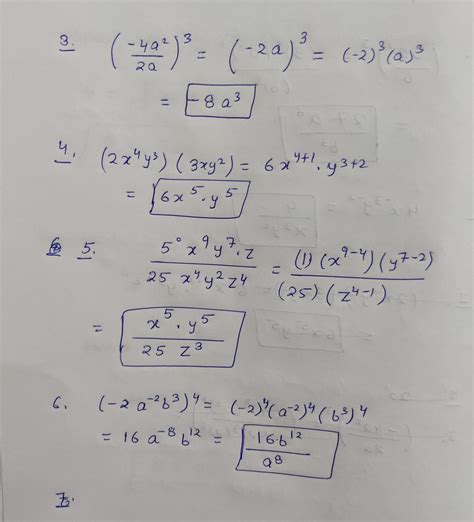 3. (-4a²/2a)³ = (-2a)³ = (-2)³(a)³
= -8a³
4. (2x⁴y³)(3xy²) = 6x⁴⁺¹·y³⁺²
= 6x⁵·y⁵
5. 5°x⁹y⁷·z / 25 x⁴y²z⁴ = (1)(x⁹⁻⁴)(y⁷⁻²) / (25)(z⁴⁻¹)
= x⁵·y⁵ / 25 z³
6. (-2a⁻²b³)⁴ = (-2)⁴(a⁻²)⁴(b³)⁴
= 16a⁻⁸b¹² = 16b¹²/a⁸
7.